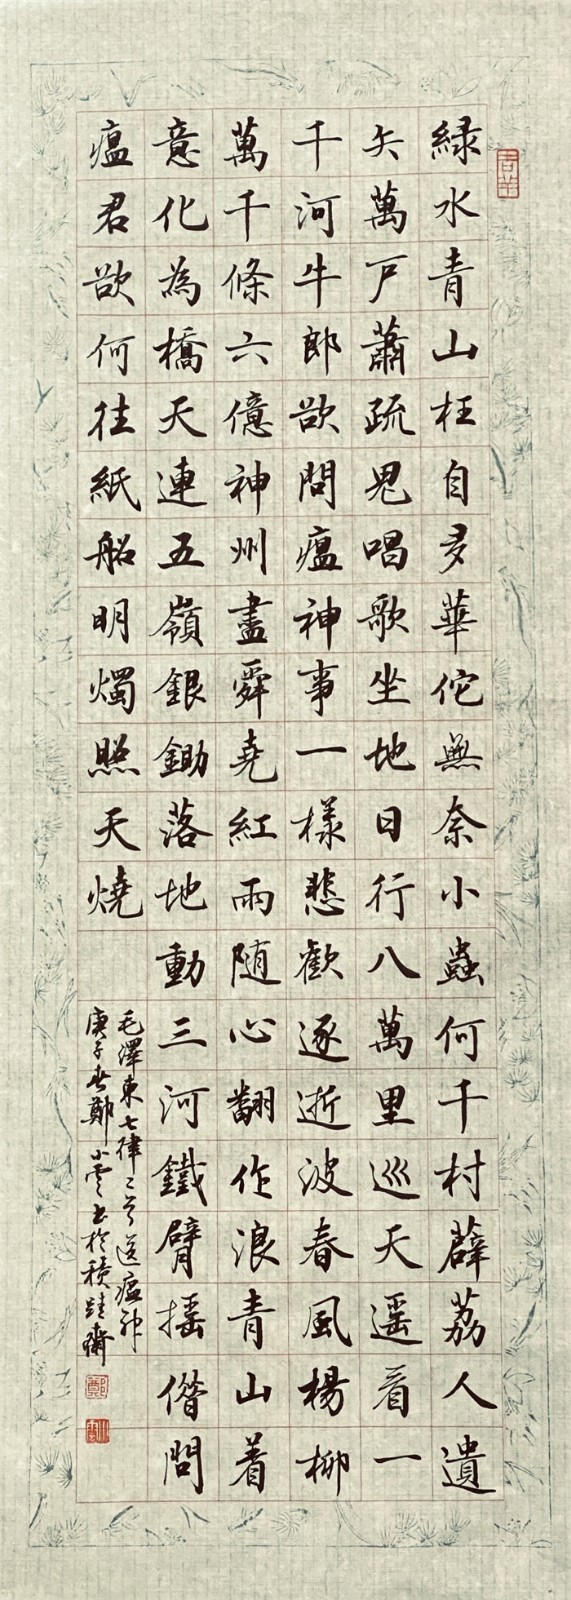 緑水青山枉自多華佗無奈小蟲何千村薜荔人遺
矢萬戶蕭疏鬼唱歌坐地日行八萬里巡天遥看一
千河牛郎欲問瘟神事一樣悲歡逐逝波春風楊柳
萬千條六億神州盡舜堯紅雨随心翻作浪青山着
意化為橋天連五嶺銀鋤落地動三河鐵臂摇借問
瘟君欲何往紙船明燭照天燒
毛澤東七律二首送瘟神
庚子春鄭小雲書於積跬齋
鄭